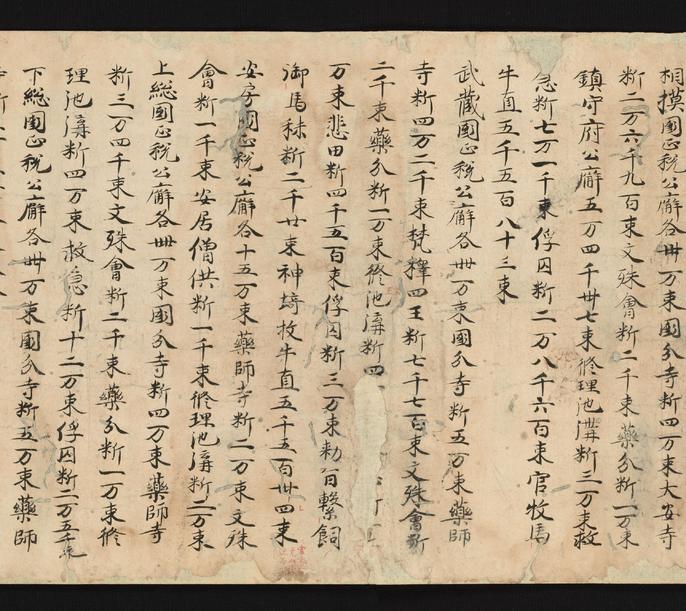 相摸國正税公廨各卅万束國分寺料四万束大安寺
料一万六千九百束文殊會料二千束藥分料一万束
鎮守府公廨五万四千卅七束修理池溝料三万束救
急料七万一千束俘囚料二万八千六百束官牧馬
牛直五千五百八十三束
武藏國正税公廨各卅万束國分寺料五万束藥師
寺料四万二千束梵釋四王料七千七百束文殊會料
二千束藥分料一万束修池溝料四
万束悲田料四千五百束俘囚料三万束勅旨繫飼
御馬秣料二千廿束神埼牧牛直五千五百卅四束
安房國正税公廨各十五万束藥師寺料二万束文殊
會料一千束安居僧供料一千束修理池溝料二万束
上総國正税公廨各卌万束國分寺料四万束藥師寺
料三万四千束文殊會料二千束藥分料一万束修
理池溝料四万束救急料十二万束俘囚料二万五千束
下総國正税公廨各卌万束國分寺料五万束藥師